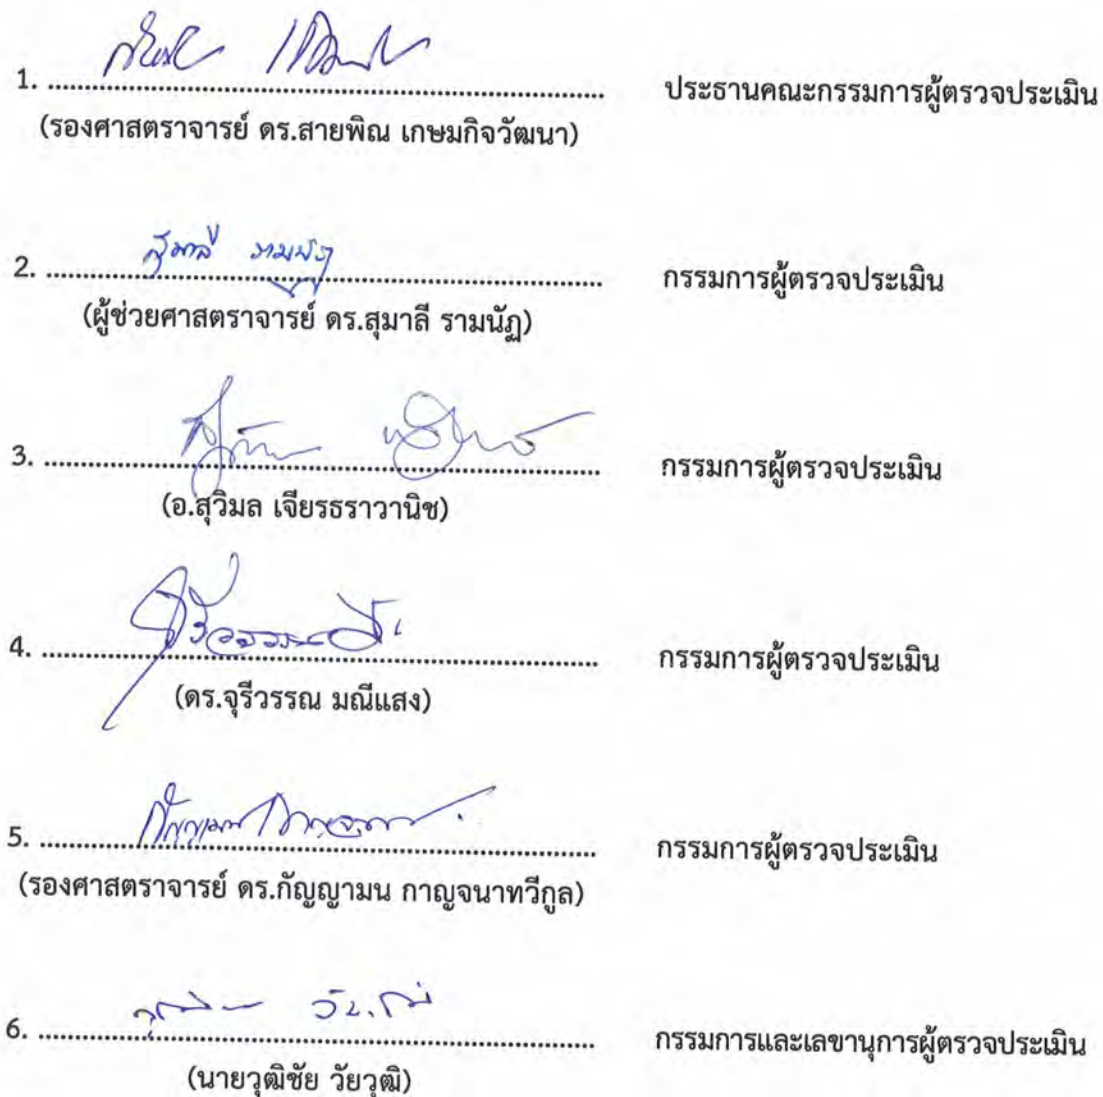 1. ............................................................ ประธานคณะกรรมการผู้ตรวจประเมิน
(รองศาสตราจารย์ ดร.สายพิณ เกษมกิจวัฒนา)
สุมาลี รามนัฏ
2. ............................................................ กรรมการผู้ตรวจประเมิน
(ผู้ช่วยศาสตราจารย์ ดร.สุมาลี รามนัฏ)
3. ............................................................ กรรมการผู้ตรวจประเมิน
(อ.สุวิมล เจียรธราวานิช)
4. ............................................................ กรรมการผู้ตรวจประเมิน
(ดร.จุรีวรรณ มณีแสง)
5. ............................................................ กรรมการผู้ตรวจประเมิน
(รองศาสตราจารย์ ดร.กัญญามน กาญจนาทวีกูล)
6. ............................................................ กรรมการและเลขานุการผู้ตรวจประเมิน
(นายวุฒิชัย วัยวุฒิ)